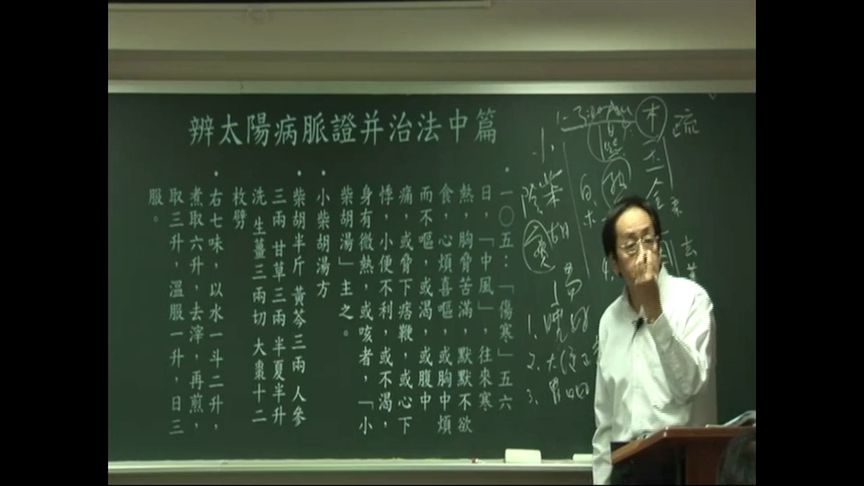 辨太陽病脈證并治法中篇
・一〇五：「傷寒」五六
日，「中風」，往來寒
熱，胸脅苦滿，默默不欲
食，心煩喜嘔，或胸中煩
而不嘔，或渴，或腹中
痛，或脅下痞鞕，或心下
悸，小便不利，或不渴，
身有微熱，或咳者，「小
柴胡湯」主之。
・小柴胡湯方
・柴胡半斤 黃芩三兩 人參
三兩 甘草三兩 半夏半升
洗 生薑三兩切 大棗十二
枚劈
・右七味，以水一斗二升，
煮取六升，去滓，再煎，
取三升，溫服一升，日三
服。
疏
木
小柴胡湯
1.
2.
3.